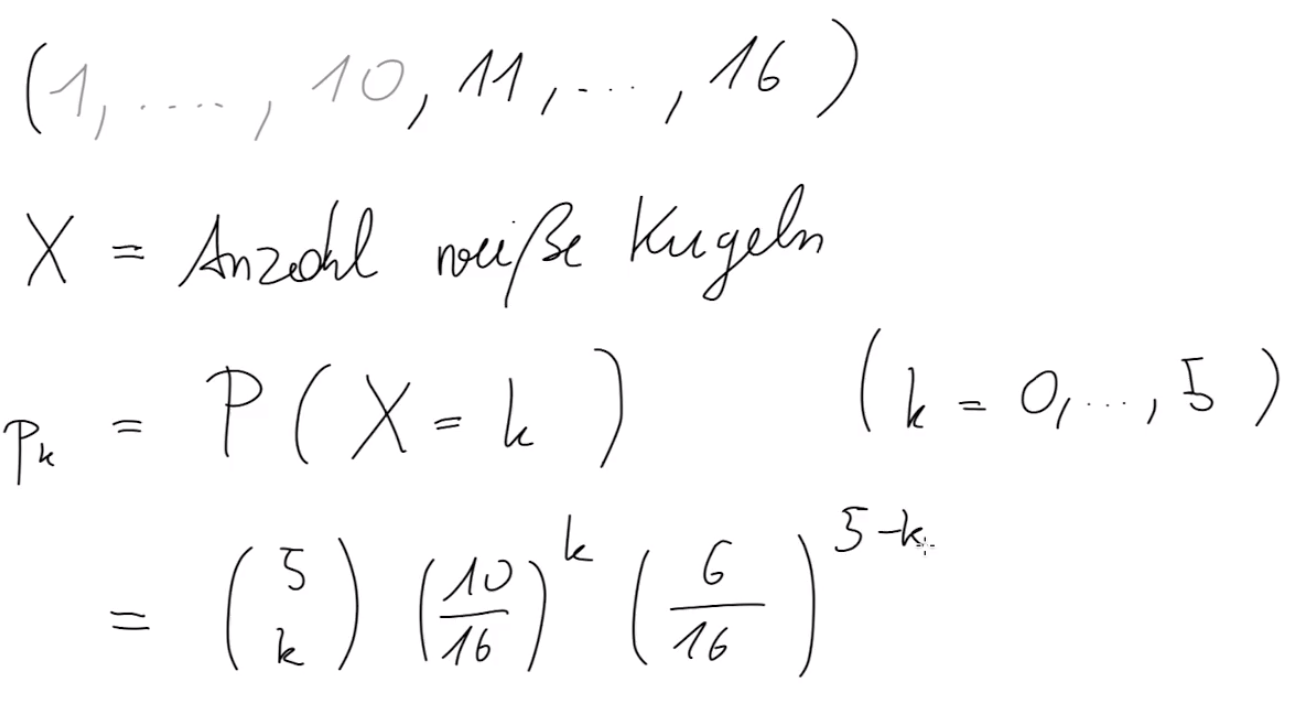 (1, ...., 10, 11, ..., 16)
X = Anzahl weiße Kugeln
p_k = P(X = k) (k = 0, ..., 5)
= \binom{5}{k} \left(\frac{10}{16}\right)^k \left(\frac{6}{16}\right)^{5-k}